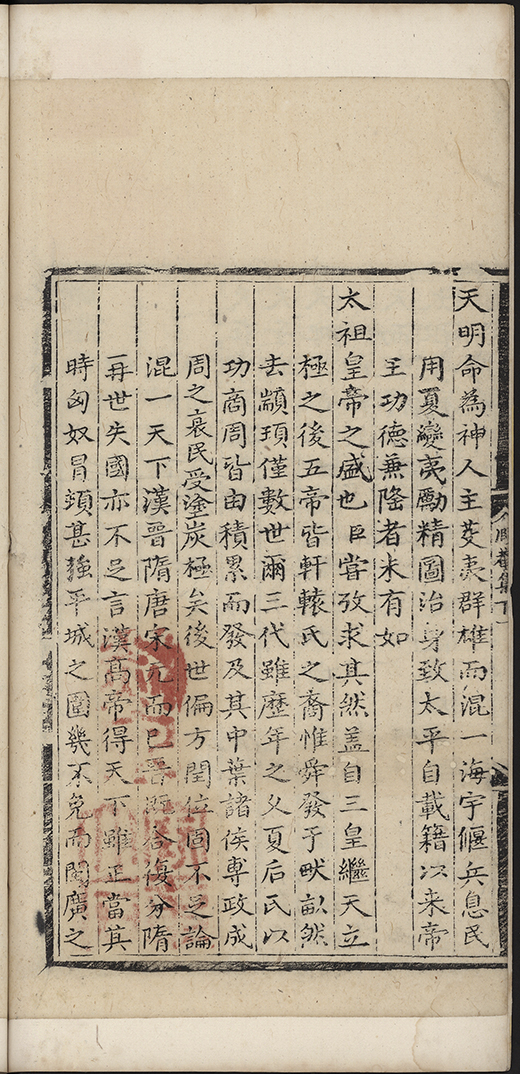 天明命為神人主芟夷群雄而混一海宇偃兵息民
用夏變夷勵精圖治身致太平自載籍以来帝
王功德兼隆者未有如
太祖皇帝之盛也臣甞攷求其然盖自三皇繼天立
極之後五帝皆軒轅氏之裔惟舜發于畎畝然
去顓頊僅數世爾三代雖歷年之久夏后氏以
功商周皆由積累而發及其中葉諸侯専政成
周之衰民受塗炭極矣後世偏方閏位固不足論
混一天下漢晉隋唐宋元而已晉既合復分隋
再世失國亦不足言漢髙帝得天下雖正當其
時匈奴冒頓甚強平城之圍幾不免而閩廣之